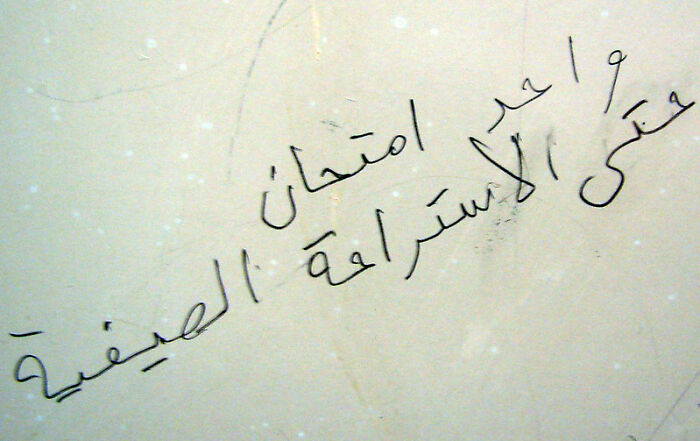 واحد امتحان
حتى الاستراحة الصيفية